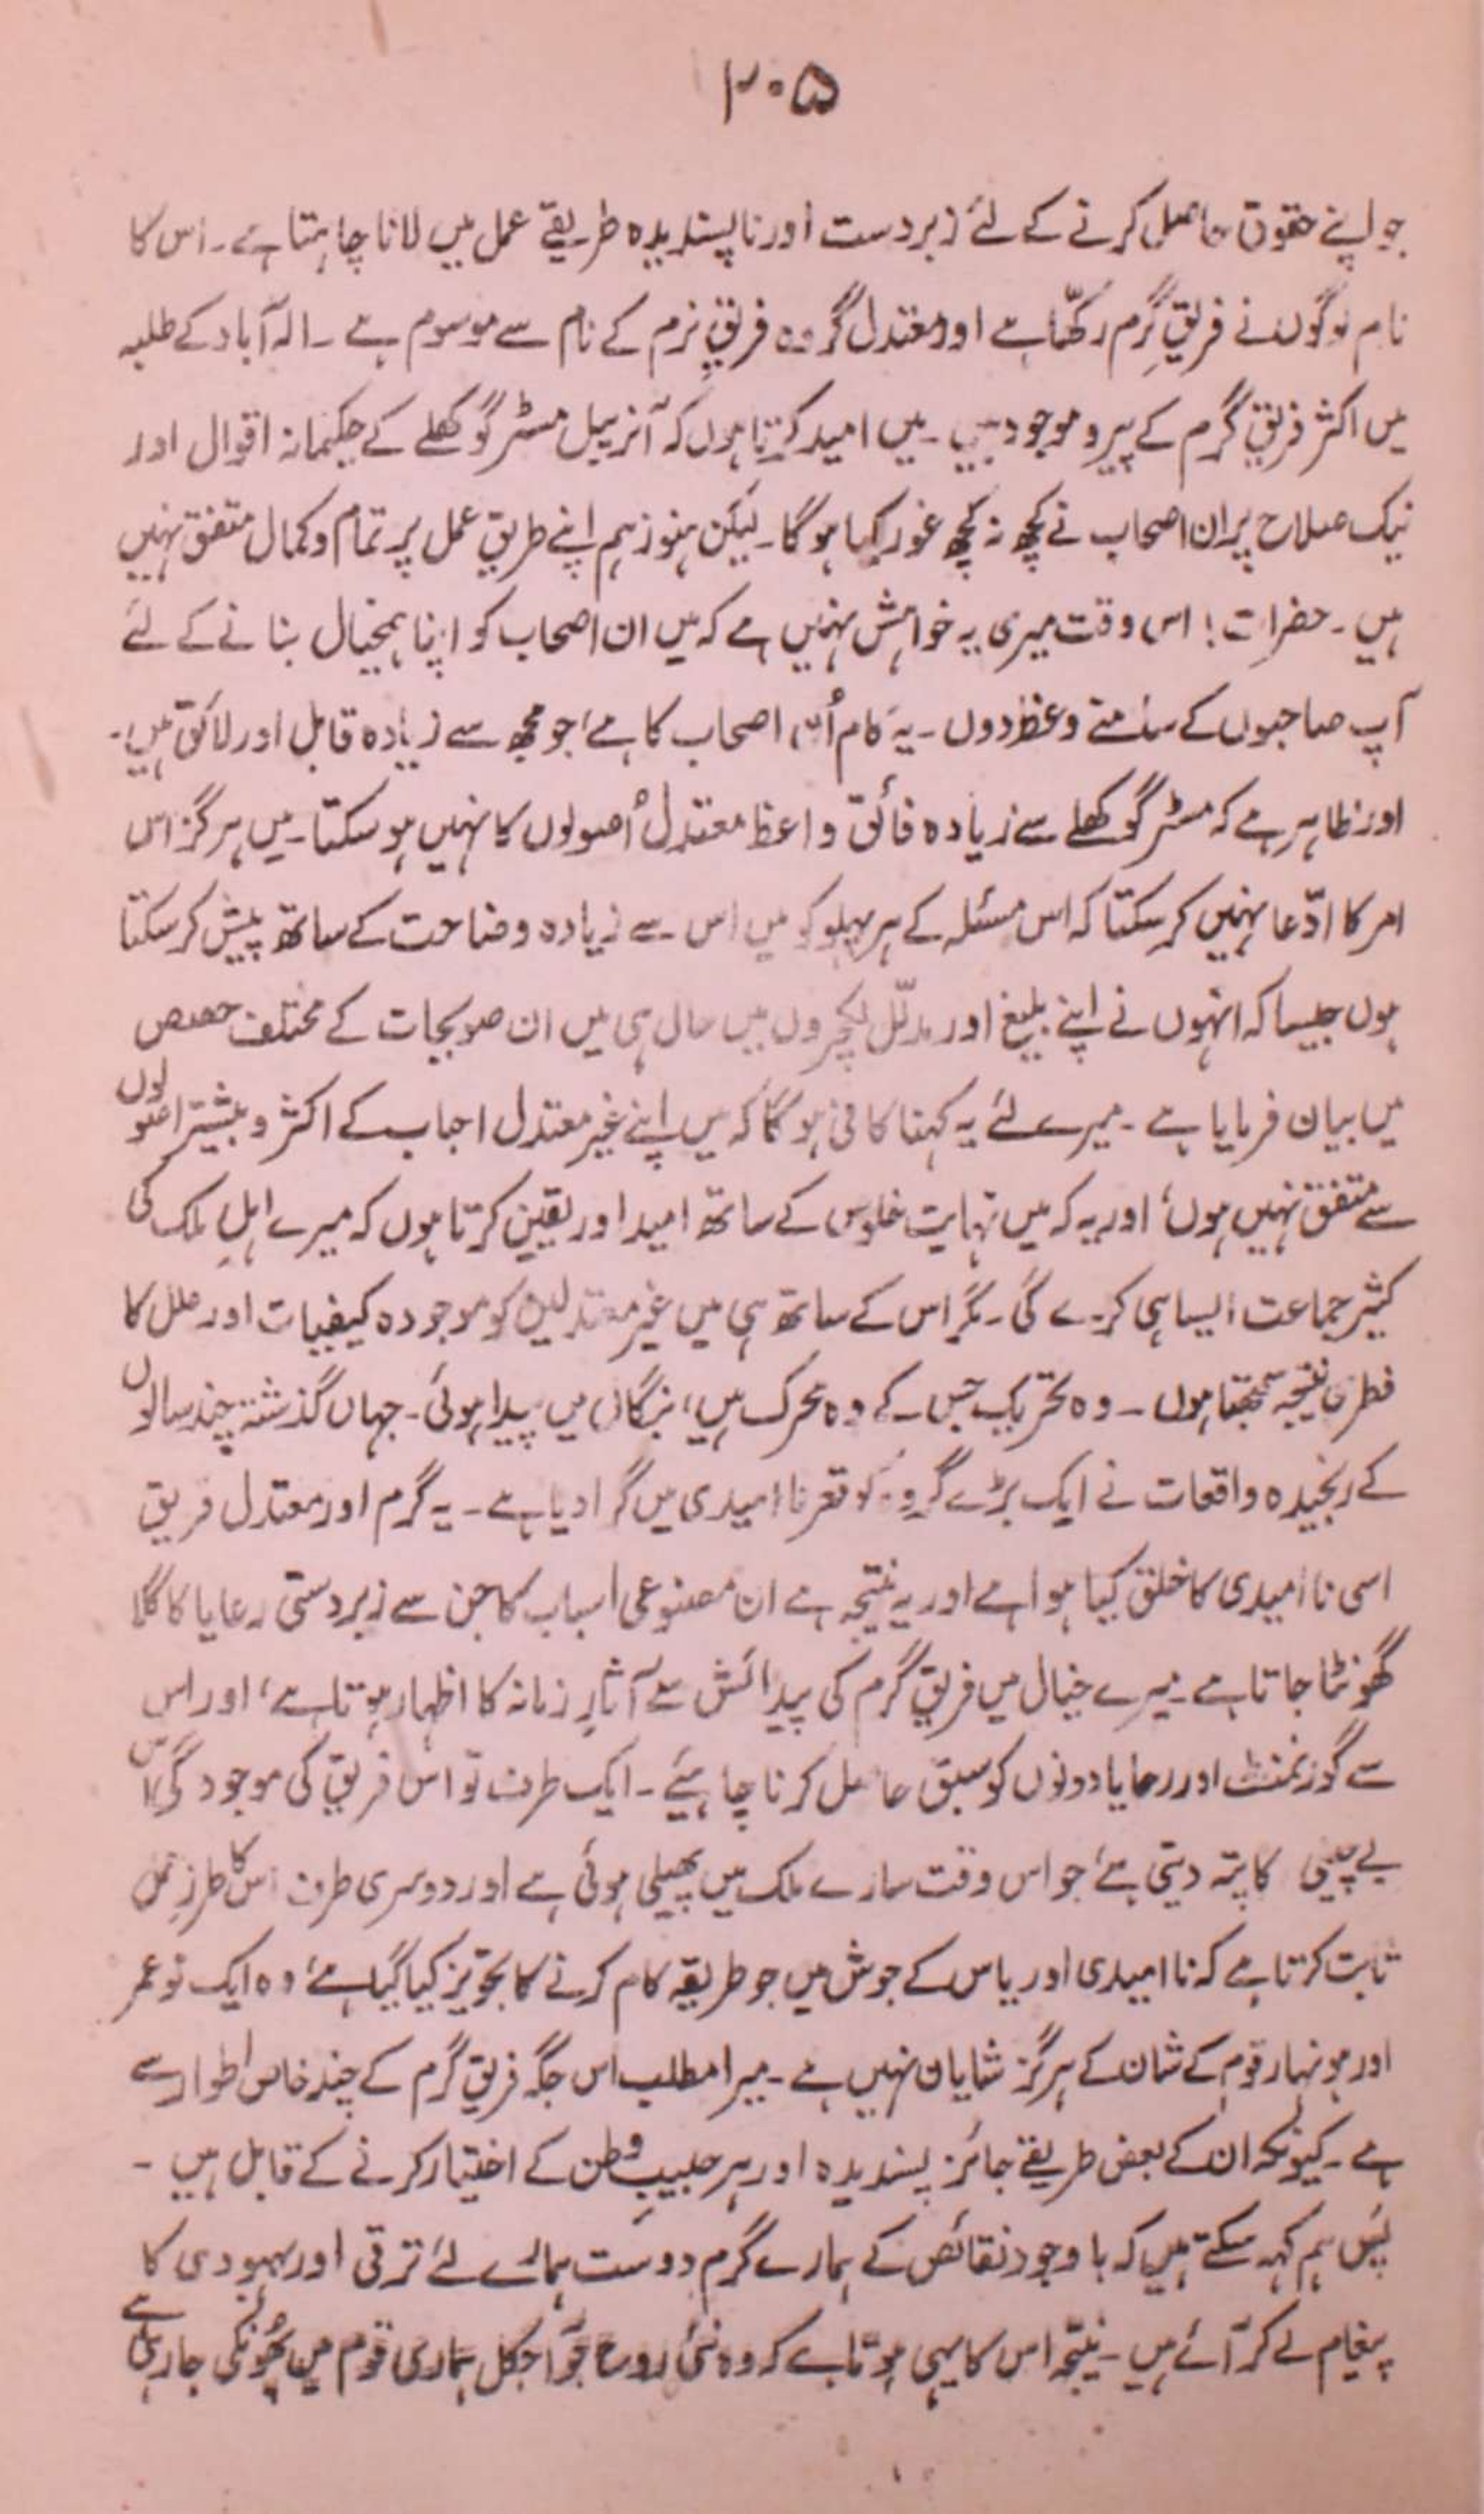 ۲۰۵
جو اپنے حقوق حاصل کرنے کے لئے زبردست اور ناپسندیدہ طریقے عمل میں لانا چاہتا ہے۔ اس کا
نام لوگوں نے فریقِ گرم رکھّا ہے اور معتدل گروہ فریقِ نرم کے نام سے موسوم ہے۔ الہ آباد کے طلبہ
میں اکثر فریقِ گرم کے پیرو موجود ہیں۔ میں امید کرتا ہوں کہ آنریبل مسٹر گوکھلے کے حکیمانہ اقوال اور
نیک صلاح پر ان اصحاب نے کچھ نہ کچھ غور کیا ہوگا۔ لیکن ہنوز ہم اپنے طریقِ عمل پر تمام و کمال متفق نہیں
ہیں۔ حضرات! اس وقت میری یہ خواہش نہیں ہے کہ میں ان اصحاب کو اپنا ہمخیال بنانے کے لئے
آپ صاحبوں کے سامنے وعظ دوں۔ یہ کام اُن اصحاب کا ہے، جو مجھ سے زیادہ قابل اور لائق ہیں۔
اور ظاہر ہے کہ مسٹر گوکھلے سے زیادہ فائق واعظ معتدل اُصولوں کا نہیں ہو سکتا۔ میں ہرگز اس
امر کا ادّعا نہیں کر سکتا کہ اس مسئلہ کے ہر پہلو کو میں اس سے زیادہ وضاحت کے ساتھ پیش کر سکتا
ہوں جیسا کہ انہوں نے اپنے بلیغ اور مدلّل لیکچروں میں حال ہی میں ان صوبجات کے مختلف حصص
میں بیان فرمایا ہے۔ میرے لئے یہ کہنا کافی ہوگا کہ میں اپنے غیر معتدل احباب کے اکثر و بیشتر اصولوں
سے متفق نہیں ہوں، اور یہ کہ میں نہایت خلوص کے ساتھ امید اور یقین کرتا ہوں کہ میرے اہلِ ملک کی
کثیر جماعت ایسا ہی کرے گی۔ مگر اس کے ساتھ ہی میں غیر معتدلین کو موجودہ کیفیات اور علل کا
فطری نتیجہ سمجھتا ہوں۔ وہ تحریک جس کے وہ محرک ہیں، بنگال میں پیدا ہوئی۔ جہاں گذشتہ چند سالوں
کے رنجیدہ واقعات نے ایک بڑے گروہ کو قعر ناامیدی میں گرا دیا ہے۔ یہ گرم اور معتدل فریق
اسی ناامیدی کا خلق کیا ہوا ہے اور یہ نتیجہ ہے ان مصنوعی اسباب کا جن سے زبردستی رعایا کا گلا
گھونٹا جاتا ہے۔ میرے خیال میں فریقِ گرم کی پیدائش سے آثارِ زمانہ کا اظہار ہوتا ہے، اور اس
سے گورنمنٹ اور رعایا دونوں کو سبق حاصل کرنا چاہئیے۔ ایک طرف تو اس فریق کی موجودگی اس
بے چینی کا پتہ دیتی ہے، جو اس وقت سارے ملک میں پھیلی ہوئی ہے اور دوسری طرف اس کا طرزِ عمل
ثابت کرتا ہے کہ ناامیدی اور یاس کے جوش میں جو طریقہ کام کرنے کا تجویز کیا گیا ہے، وہ ایک نوعمر
اور ہونہار قوم کے شان کے ہرگز شایان نہیں ہے۔ میرا مطلب اس جگہ فریقِ گرم کے چند خاص اطوار سے
ہے۔ کیونکہ ان کے بعض طریقے جائز پسندیدہ اور ہر حبیبِ وطن کے اختیار کرنے کے قابل ہیں۔
پس ہم کہہ سکتے ہیں کہ باوجود نقائص کے ہمارے گرم دوست ہمارے لئے ترقی اور بہبودی کا
پیغام لے کر آئے ہیں۔ نتیجہ اس کا یہی ہوتا ہے کہ وہ نئی روح جو آجکل ہماری قوم میں پھونکی جا رہی ہے